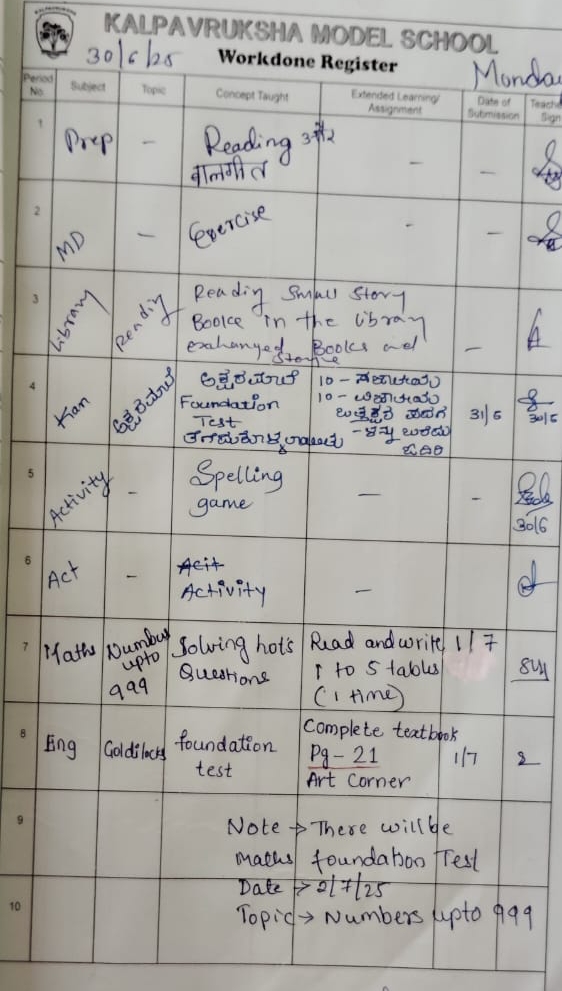 KALPAVRUKSHA MODEL SCHOOL
30/6/25 Workdone Register Monday
Period No. Subject Topic Concept Taught Extended Learning/ Assignment Date of Submission Teache Sign
1 Prep - Reading और - -
बालगीत
2 MD - Exercise - -
3 Library Reading Reading Small Story
Books in the library
exahanged Books and -
4 Kan ಅಕ್ಷರಮಾಲೆ ಅಕ್ಷರಮಾಲೆ 10 - ಸಜಾತೀಯ
Foundation 10 - ವಿಜಾತೀಯ 31/6 30/6
Test ಒತ್ತಕ್ಷರ ಪದಗ
-ಳನ್ನು ಬರೆದು
ಓದಿರಿ
5 Activity - Spelling - - 30/6
game
6 Act - Acit -
Activity
7 Maths Numbers Solving hot's Read and write 1/7
upto Questions 1 to 5 tables
999 (1 time)
8 Eng Goldilocks foundation Complete textbook
test Pg - 21 1/7
Art Corner
9 Note → There will be
Maths foundation Test
Date → 2/7/25
10 Topic → Numbers upto 999